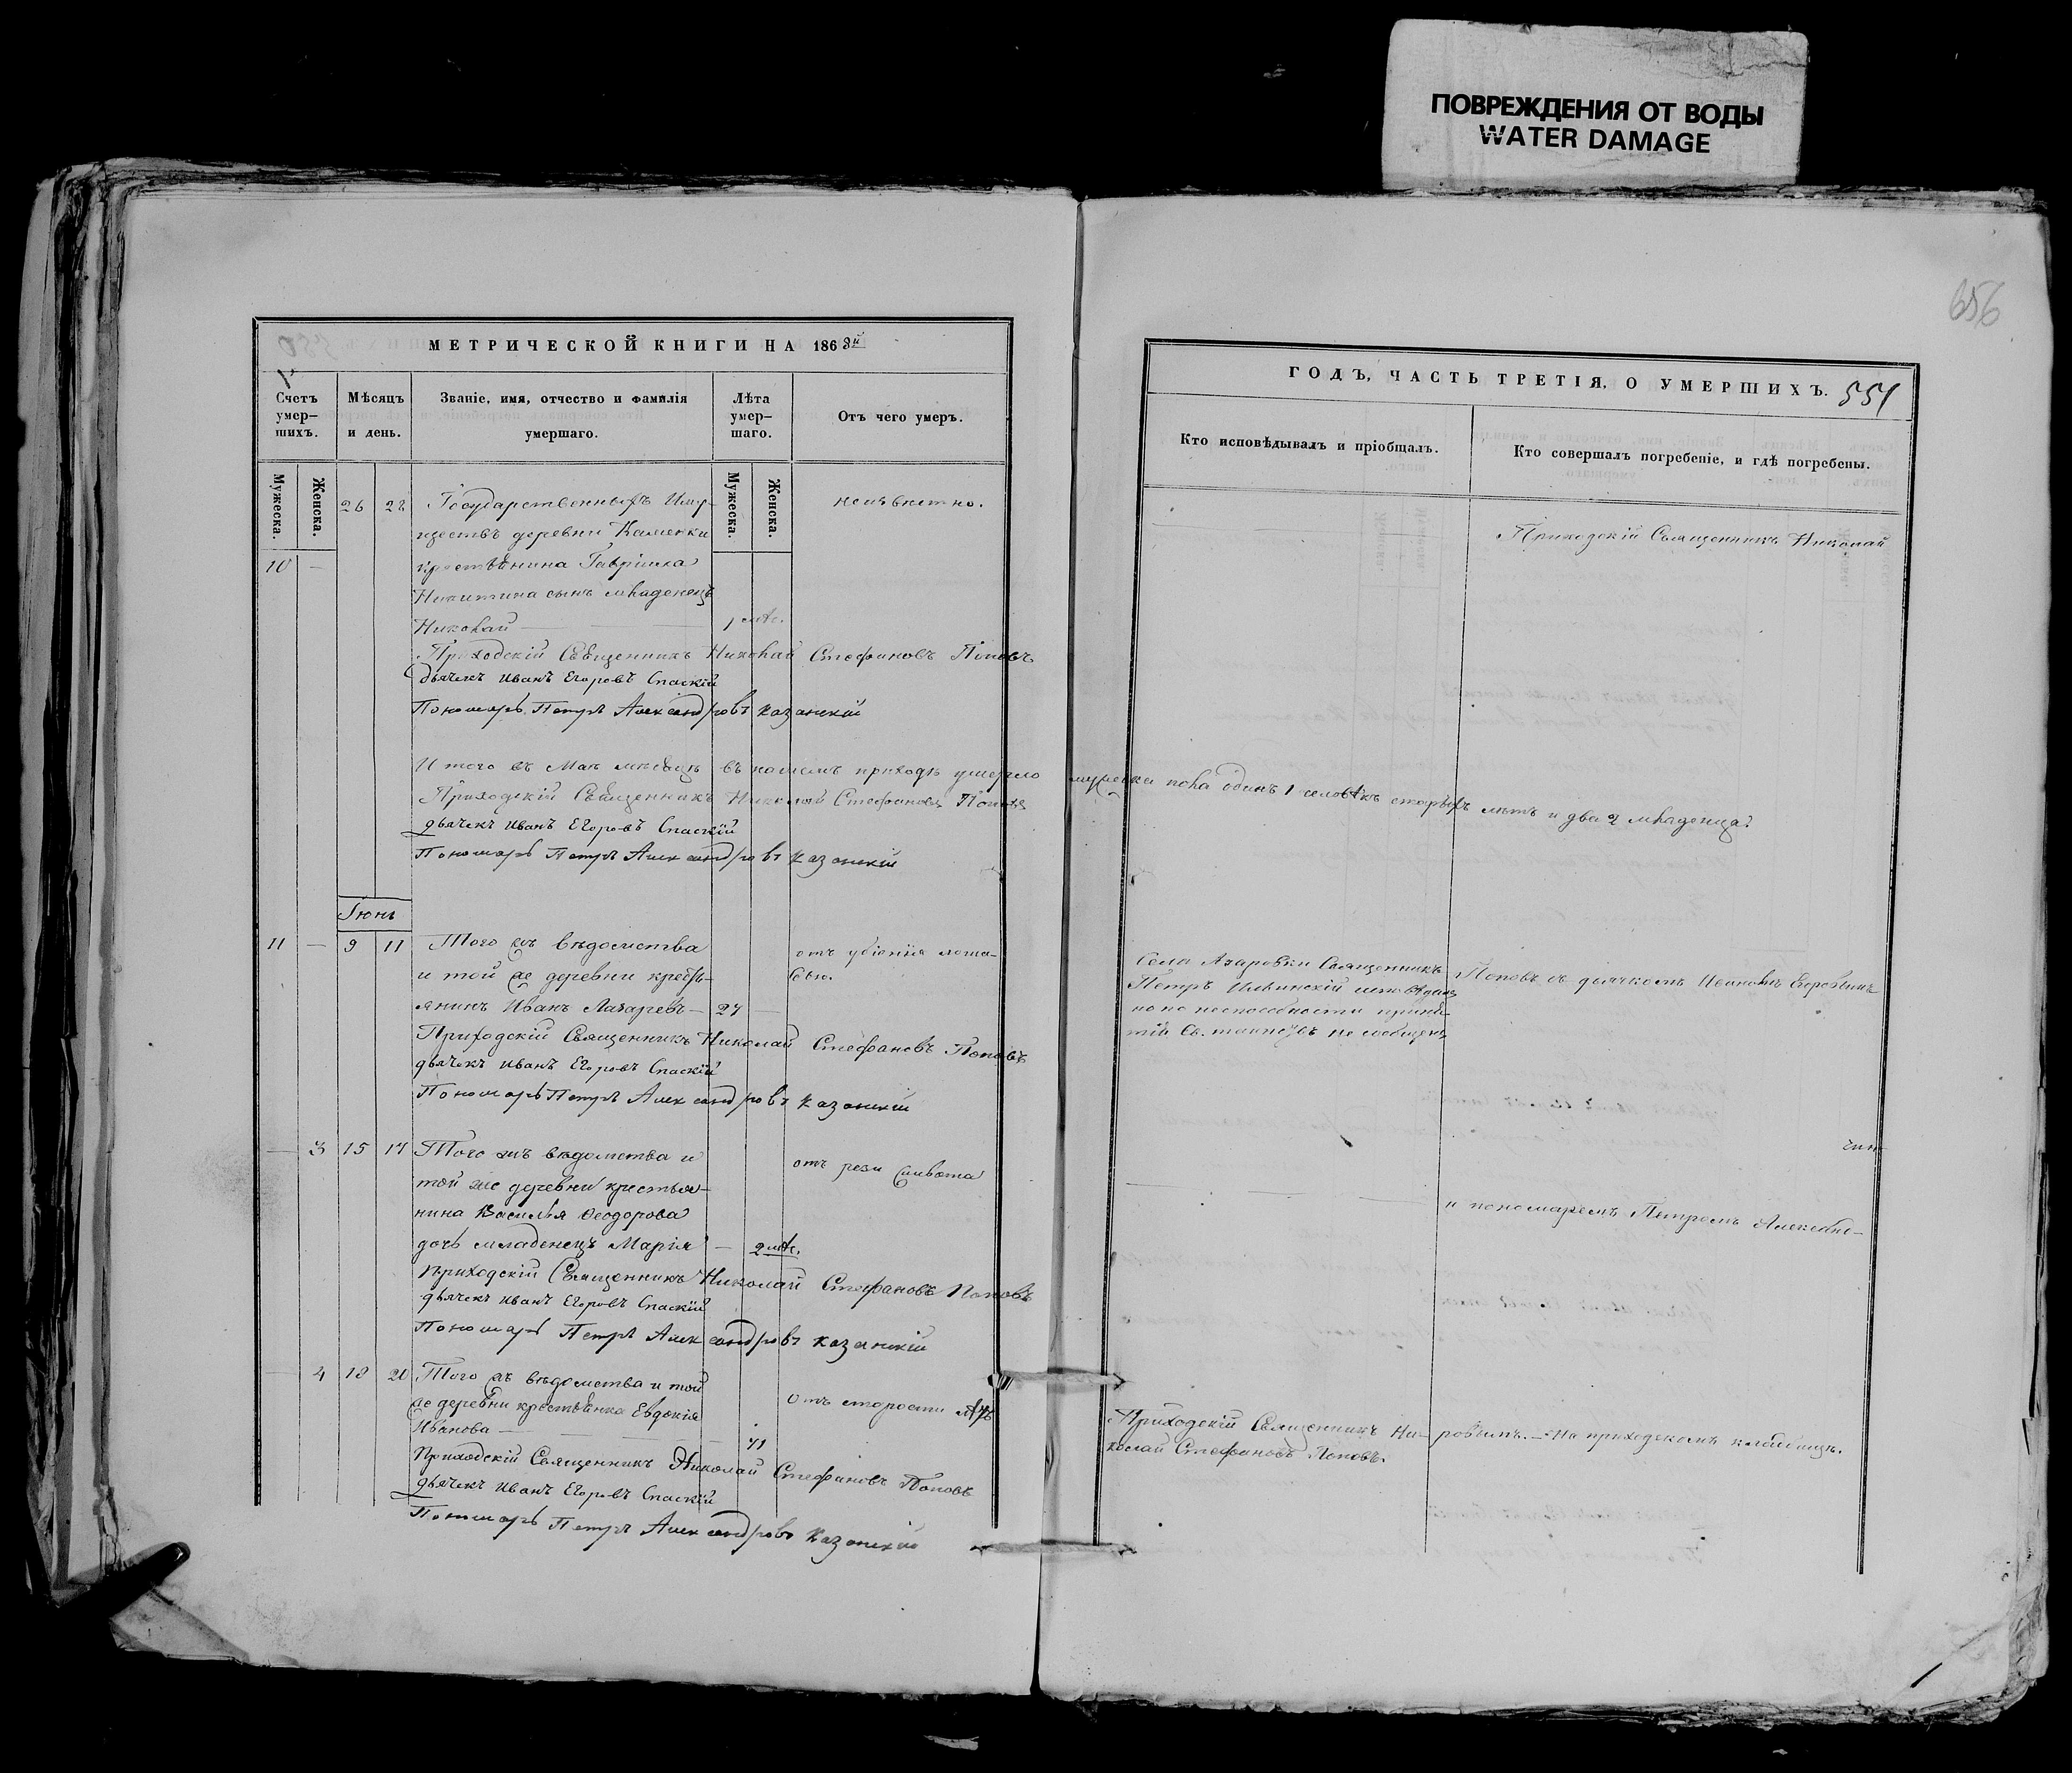 ПОВРЕЖДЕНИЯ ОТ ВОДЫ
WATER DAMAGE
656
МЕТРИЧЕСКОЙ КНИГИ НА 1868й
Счетъ умер-
шихъ.
Мѣсяцъ
и день.
Званіе, имя, отчество и фамилія
умершаго.
Лѣта
умер-
шаго.
Отъ чего умеръ.
Мужеска.
Женска.
Мужеска.
Женска.
26 28 Государственныхъ Иму- неизвѣстно.
ществъ деревни Каменки
10 — крестьянина Гавріила
Никитина сынъ младенецъ
Николай — 1 мѣс.
Приходскій Священникъ Николай Стефановъ Поповъ
дьячекъ Иванъ Егоровъ Спаскій
Пономарь Петръ Александровъ Казанскій
Итого въ Маѣ мѣсяцѣ въ нашемъ приходѣ умерло мужеска пола одинъ 1 человѣкъ старыхъ лѣтъ и два 2 младенца.
Приходскій Священникъ Николай Стефановъ Поповъ
дьячекъ Иванъ Егоровъ Спаскій
Пономарь Петръ Александровъ Казанскій
Іюнь
11 — 9 11 Того жъ вѣдомства отъ убіенія лоша-
и той же деревни кресть- дью.
янинъ Иванъ Лазаревъ — 27 —
Приходскій Священникъ Николай Стефановъ Поповъ
дьячекъ Иванъ Егоровъ Спаскій
Пономарь Петръ Александровъ Казанскій
— 3 15 17 Того жъ вѣдомства и отъ рези живота
той же деревни крестья-
нина Василья Ѳеодорова
дочь младенецъ Марія — 2 мѣс.
Приходскій Священникъ Николай Стефановъ Поповъ
дьячекъ Иванъ Егоровъ Спаскій
Пономарь Петръ Александровъ Казанскій
— 4 18 20 Того жъ вѣдомства и той отъ старости лѣтъ
же деревни крестьянка Евдокія
Иванова — 71
Приходскій Священникъ Николай Стефановъ Поповъ
дьячекъ Иванъ Егоровъ Спаскій
Пономарь Петръ Александровъ Казанскій
ГОДЪ, ЧАСТЬ ТРЕТІЯ, О УМЕРШИХЪ. 551
Кто исповѣдывалъ и пріобщалъ.
Кто совершалъ погребеніе, и гдѣ погребены.
Приходскій Священникъ Николай
Села Азаровки Священникъ Поповъ съ дьячкомъ Иваномъ Егоровымъ
Петръ Ильинскій исповѣдалъ
но по неспособности приня-
тій Св. таинъ не сообщенъ
и пономаремъ Петромъ Александ-
Приходскій Священникъ Ни- ровымъ. — На приходскомъ кладбищѣ.
колай Стефановъ Поповъ.